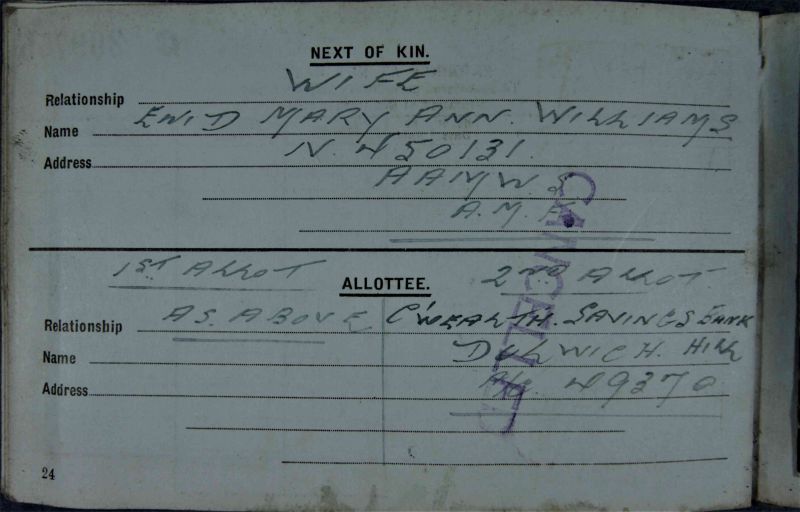 NEXT OF KIN.
Relationship WIFE
Name ENID MARY ANN. WILLIAMS
Address N. 450131.
AAMWS
A.M.F.
CANCELLED
1ST ALLOT ALLOTTEE. 2ND ALLOT
Relationship AS ABOVE C'WEALTH. SAVINGS BANK
Name DULWICH. HILL
Address A/c. 49370
24